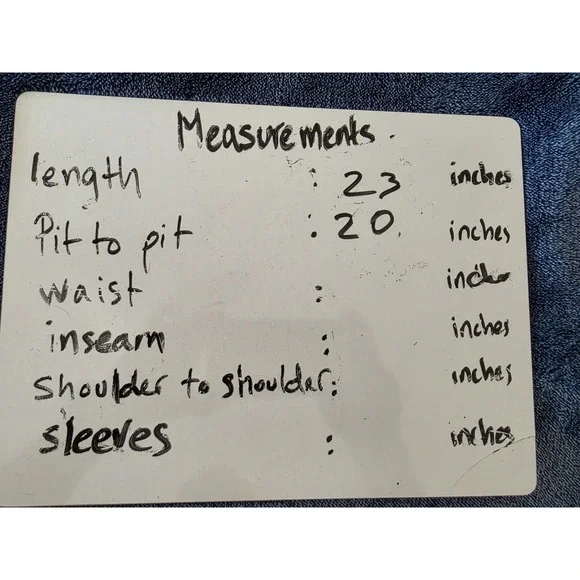 Measurements.
length : 23 inches
Pit to pit : 20. inches
waist : inches
inseam : inches
shoulder to shoulder: inches
sleeves : inches